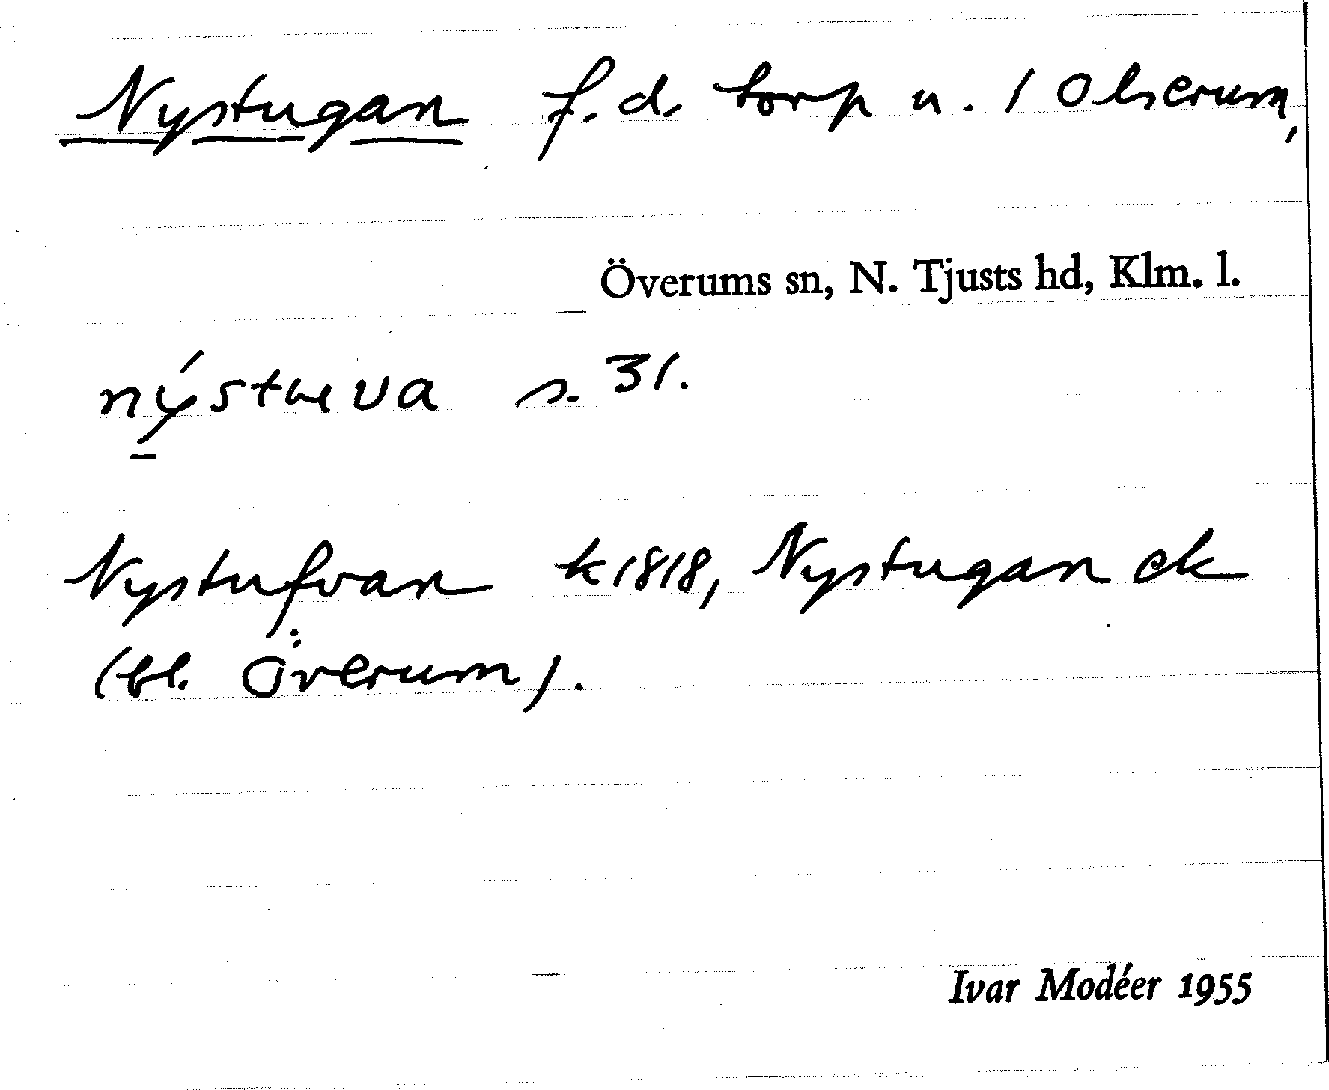 Nystugan f.d. torp u. 1 Olserum,
Överums sn, N. Tjusts hd, Klm. l.
nýstuva s. 31.
Nystufvan k 1818, Nystugan ek
(bl. Överum).
Ivar Modéer 1955